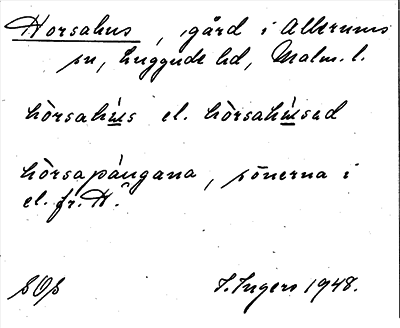 Horsahus, gård i Allerums
sn, Luggude hd, Malm. l.
hòrsahús el. hòrsahúsed
hòrsapágana, sönerna i
el. fr. H.
SOS I. Ingers 1948.